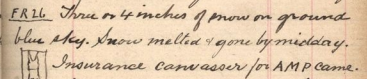 FR 26 Three or 4 inches of snow on ground
blue sky. Snow melted & gone by midday.
Insurance canvasser for AMP came.